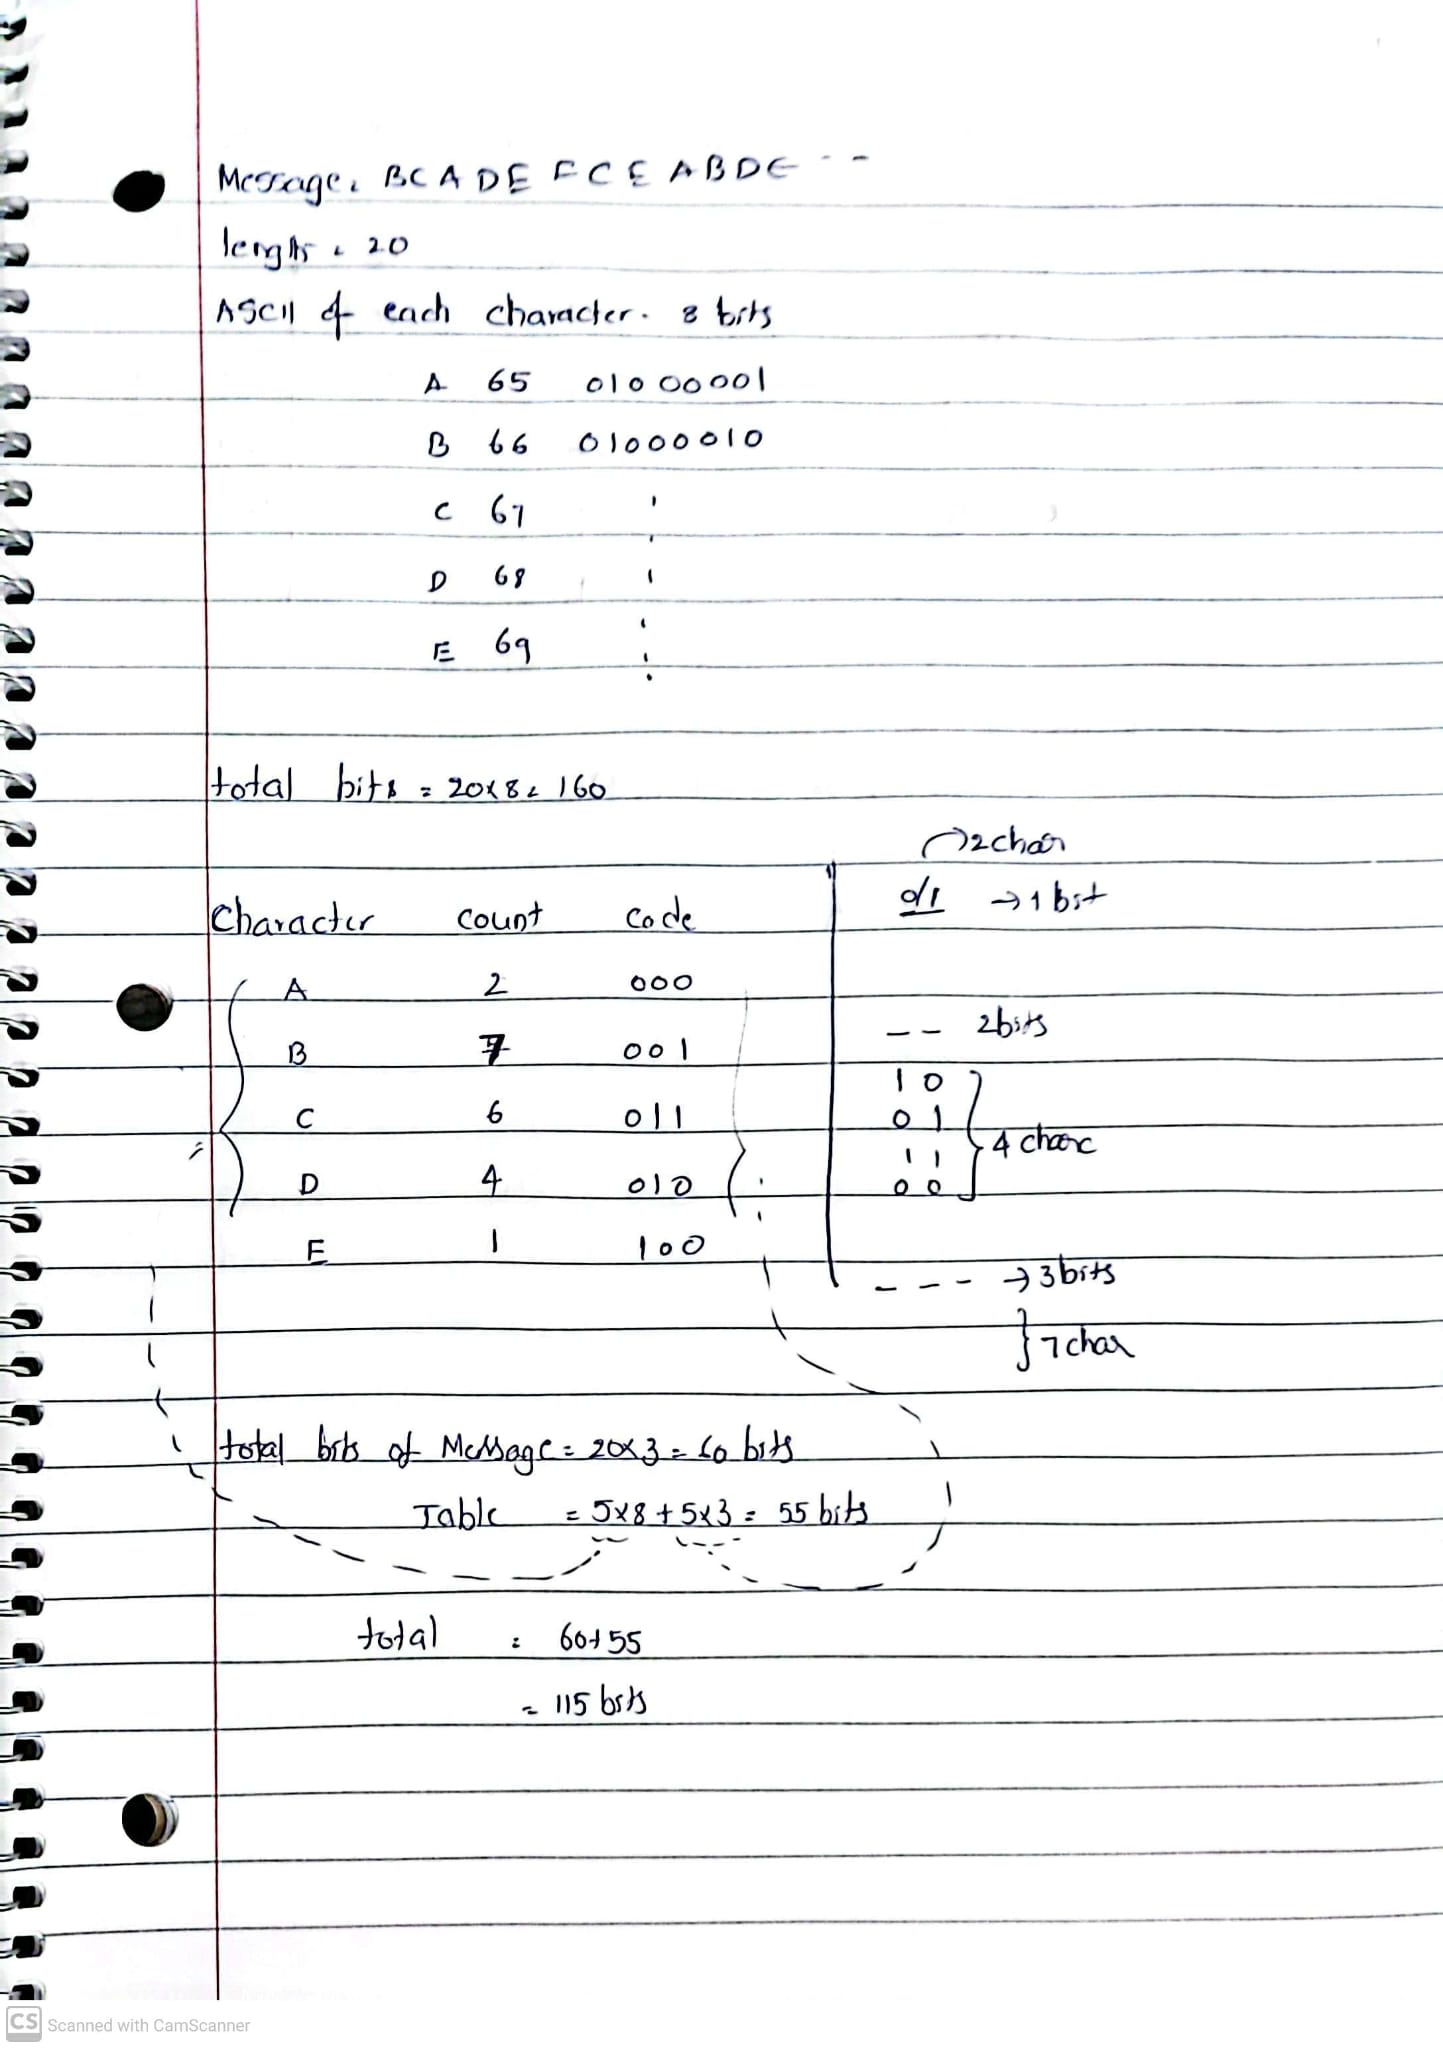 Message: BCADE FCE ABDE --
length = 20
ASCII of each character. 8 bits
A 65 01000001
B 66 01000010
C 67
D 68
E 69
total bits = 20x8 = 160
Character count code
A 2 000
B 7 001
C 6 011
D 4 010
E 1 100
2char
0/1 → 1 bit
-- 2bits
10
01
11
00
4 charc
--- → 3bits
} 7 char
total bits of Message = 20x3 = 60 bits
Table = 5x8 + 5x3 = 55 bits
total = 60+55
= 115 bits
CS Scanned with CamScanner